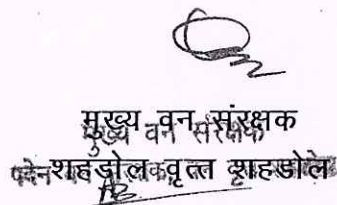 मुख्य वन संरक्षक
मुख्य वन संरक्षक
शहडोल वृत्त शहडोल
पदेन